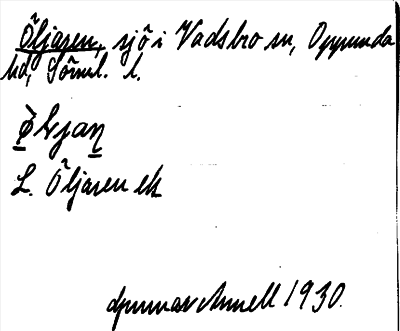 Öljaren, sjö i Vadsbro sn, Oppunda
hd, Sörml. l.
L. Öljaren ek
Gunnar Annell 1930.